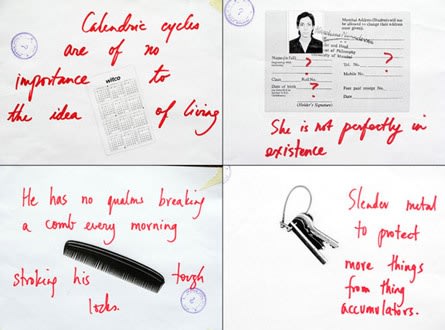 Calendric cycles
are of no
importance to
the idea of living
witco
Mumbai Address (Hostel/residence)will not
be allowed to change their address
once given)
of Philosophy
University of Mumbai
Name(in full) ?
Tel. No. ?
Mobile No.
Class Roll No.
Date of birth ?
Fees paid receipt No.
Date
(Holder's Signature)
She is not perfectly in
existence
He has no qualms breaking
a comb every morning
stroking his tough
locks.
Slender metal
to protect
more things
from thing
accumulators.